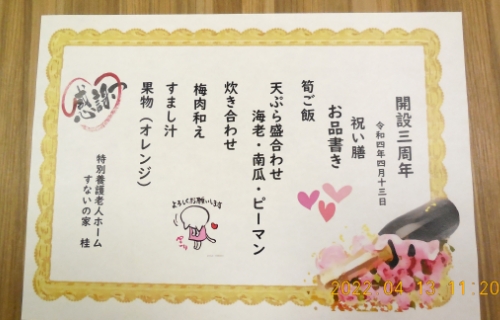 開設三周年
令和四年四月十三日
祝い膳
お品書き
筍ご飯
天ぷら盛合わせ
海老・南瓜・ピーマン
炊き合わせ
梅肉和え
すまし汁
果物（オレンジ）
特別養護老人ホーム
すないの家 桂
感謝
よろしくお願いします
2022.04.13 11:20